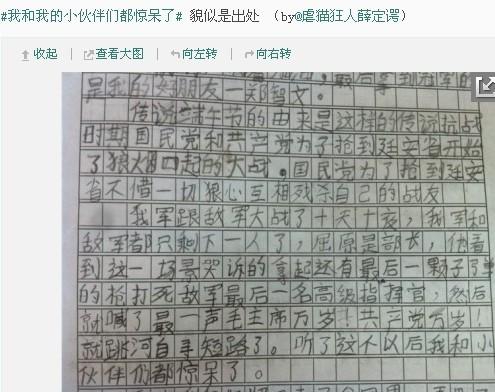 #我和我的小伙伴们都惊呆了# 貌似是出处 （by@虐猫狂人薛定谔）
收起 | 查看大图 | 向左转 | 向右转
最后拿到冠军的
是我的好朋友一郑智文。
传说端午节的由来是这样的传说抗战
时期国民党和共产党为了抢到延安省开始
了狼烟四起的大战。国民党为了抢到延安
省不惜一切狠心互相残杀自己的战友
我军跟敌军大战了十天十夜，我军和
敌军都只剩下一人了，屈原是部长，他看
到这一场景哭诉的拿起还有最后一颗子了单
的枪打死敌军最后一名高级指挥官，然后
就喊了最一声毛主席万岁！共产党万岁！
就跳河自寻短路了。听了这个以后我和小
伙伴们都惊呆了。